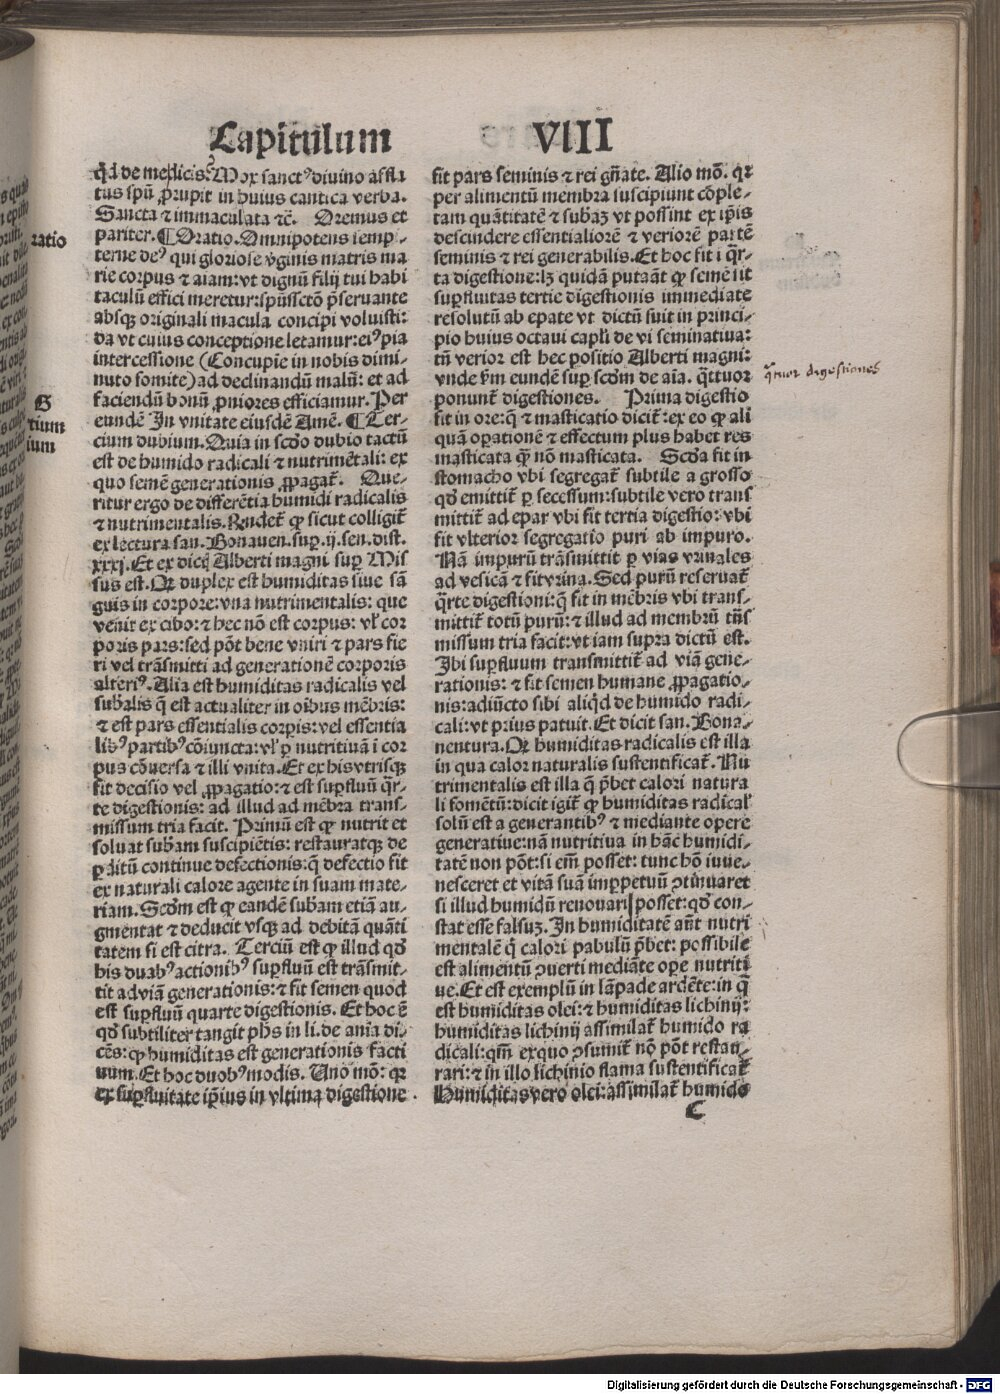 Capitulum VIII
q̃d de medicis? Mox sanctꝰ diuino affla
tus spũ ꝓrupit in huius cantica verba.
Sancta ⁊ immaculata ⁊c̃. Oremus et
pariter. ¶ Oratio. Omnipotens semp-
terne deꝰ qui gloriose ṽginis matris ma
rie corpus ⁊ aiam: vt dignũ filij tui habi
taculũ effici meretur: spũssctõ p̃seruante
absqꝫ originali macula concipi voluisti:
da vt cuius conceptione letamur: eiꝰ pia
intercessione (Concupie in nobis dimi-
nuto fomite) ad declinandũ malũ: et ad
faciendũ bonũ ꝓniores efficiamur. Per
eundẽ In vnitate eiusdẽ Amẽ. ¶ Ter-
cium dubium. Quia in scdo dubio tactũ
est de humido radicali ⁊ nutrimẽtali: ex
quo semẽ generationis ꝓpagat̃. Que-
ritur ergo de differẽtia humidi radicalis
⁊ nutrimentalis. Rñdet̃ ꝙ sicut colligit̃
ex lectura san. Bonauen. sup̃. ij. sen. dist.
xxxj. Et ex dictꝭ Alberti magni sup̃ Mis
sus est. Qꝛ duplex est humiditas siue sã
guis in corpore: vna nutrimentalis: que
venit ex cibo: ⁊ hec nõ est corpus: vl̃ cor
poris pars: sed põt bene vniri ⁊ pars fie
ri vel trãsmitti ad generationẽ corporis
alteriꝰ. Alia est humiditas radicalis vel
subalis q̃ est actualiter in oĩbus mẽbris:
⁊ est pars essentialis corpis: vel essentia
libꝰ partibꝰ cõiuncta: vl̃ p̱ nutritiuã ĩ cor
pus cõuersa ⁊ illi vnita. Et ex his vtrisqꝫ
fit decisio vel ꝓpagatio: ⁊ est sup̱fluũ q̃r-
te digestionis: ad illud ad mẽbra trans-
missum tria facit. Primũ est ꝙ nutrit et
soluat subam suscipiẽtis: restauratqꝫ de
p̱ditũ continue defectionis: q̃ defectio fit
ex naturali calore agente in suam mate-
riam. Scdm est ꝙ eandẽ subam etiã au-
gmentat ⁊ deducit vsqꝫ ad debitã quãti
tatem si est citra. Terciũ est ꝙ illud qd̃
his duabꝰ actionibꝰ sup̱fluũ est trãsmit-
tit ad viã generationis: ⁊ fit semen quod
est sup̱fluũ quarte digestionis. Et hoc ẽ
qd̃ subtiliter tangit ph̃s in li. de anĩa di-
cẽs: ꝙ humiditas est generationis facti
uum. Et hoc duobꝰ modis. Uno mõ: qꝛ
ex sup̱fluitate ip̃ius in vltima digestione
fit pars seminis ⁊ rei gñate. Alio mõ. qꝛ
per alimentũ membra suscipiunt cõple-
tam quãtitatẽ ⁊ subaꝫ vt possint ex ip̃is
descindere essentialiorẽ ⁊ veriorẽ partẽ
seminis ⁊ rei generabilis. Et hoc fit ĩ q̃r-
ta digestione: lꝫ quidã putãt ꝙ semẽ sit
sup̱fluitas tertie digestionis immediate
resolutũ ab epate vt dictũ fuit in princi-
pio huius octaui capl̃i de vi seminatiua:
tñ verior est hec positio Alberti magni:
vnde ẽm eundẽ sup̃ scdm de aĩa. q̃ttuor
ponunt̃ digestiones. Prima digestio
fit in ore: q̃ ⁊ masticatio dicit̃: ex eo ꝙ ali
quã op̱ationẽ ⁊ effectum plus habet res
masticata q̃ nõ masticata. Scd̃a fit in
stomacho vbi segregat̃ subtile a grosso
qd̃ emittit̃ p̱ secessum: subtile vero trans
mittit̃ ad epar vbi fit tertia digestio: vbi
fit vlterior segregatio puri ab impuro.
Nã impurũ trãsmittit̃ p̱ vias vrinales
ad vesicã ⁊ fit vrina. Sed purũ reseruat̃
q̃rte digestioni: q̃ fit in mẽbris vbi trans-
mittit̃ totũ purũ: ⁊ illud ad membrũ trñs
missum tria facit: vt iam supra dictũ est.
Ibi sup̱fluum transmittit̃ ad viã gene-
rationis: ⁊ fit semen humane ꝓpagatio-
nis: adiũcto sibi aliq̇d de humido radi-
cali: vt prius patuit. Et dicit san. Bona-
uentura. Qꝛ humiditas radicalis est illa
in qua calor naturalis sustentificat̃. Nu
trimentalis est illa q̃ p̃bet calori natura
li fomẽtũ: dicit igit̃ ꝙ humiditas radical̃
solũ est a generantibꝰ ⁊ mediante opere
generatiue: nã nutritiua in hãc humidi-
tatẽ non põt: si em̃ posset: tunc hõ iuue-
nesceret et vitã suã imp̱petuũ ꝯtinuaret
si illud humidũ renouari posset: qd̃ con-
stat esse falsuꝫ. In humiditatẽ aũt nutri
mentalẽ q̃ calori pabulũ p̃bet: possibile
est alimentũ ꝯuerti mediãte op̱e nutriti
ue. Et est exemplũ in lãpade ardẽte: in q̃
est humiditas olei: ⁊ humiditas lichinij:
humiditas lichinij assimilat̃ humido ra
dicali: qm̃ exquo ꝯsumit̃ nõ põt restau-
rari: ⁊ in illo lichinio flama sustentificat̃
Humiditas vero olei: assimilat̃ humido
C
ratio
tium
ium
q̃tuor digestiones
Digitalisierung gefördert durch die Deutsche Forschungsgemeinschaft - DFG